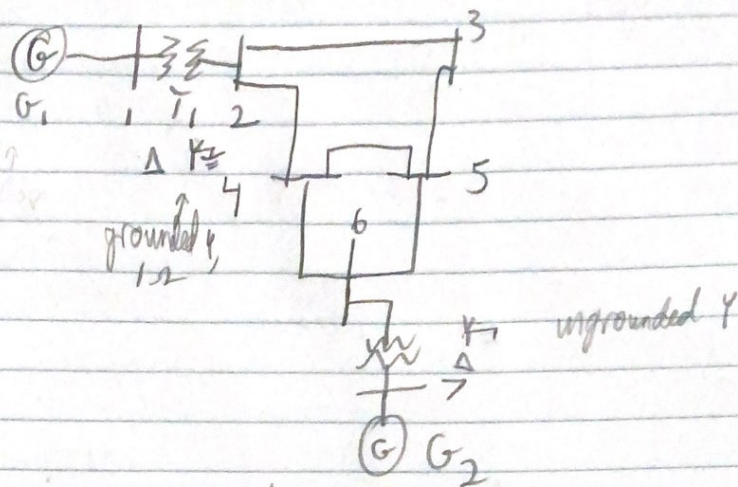 3
G
G1 1 T1 2
Δ Y
4 5
grounded Y,
1Ω
6
Y ungrounded Y
Δ
7
G G2